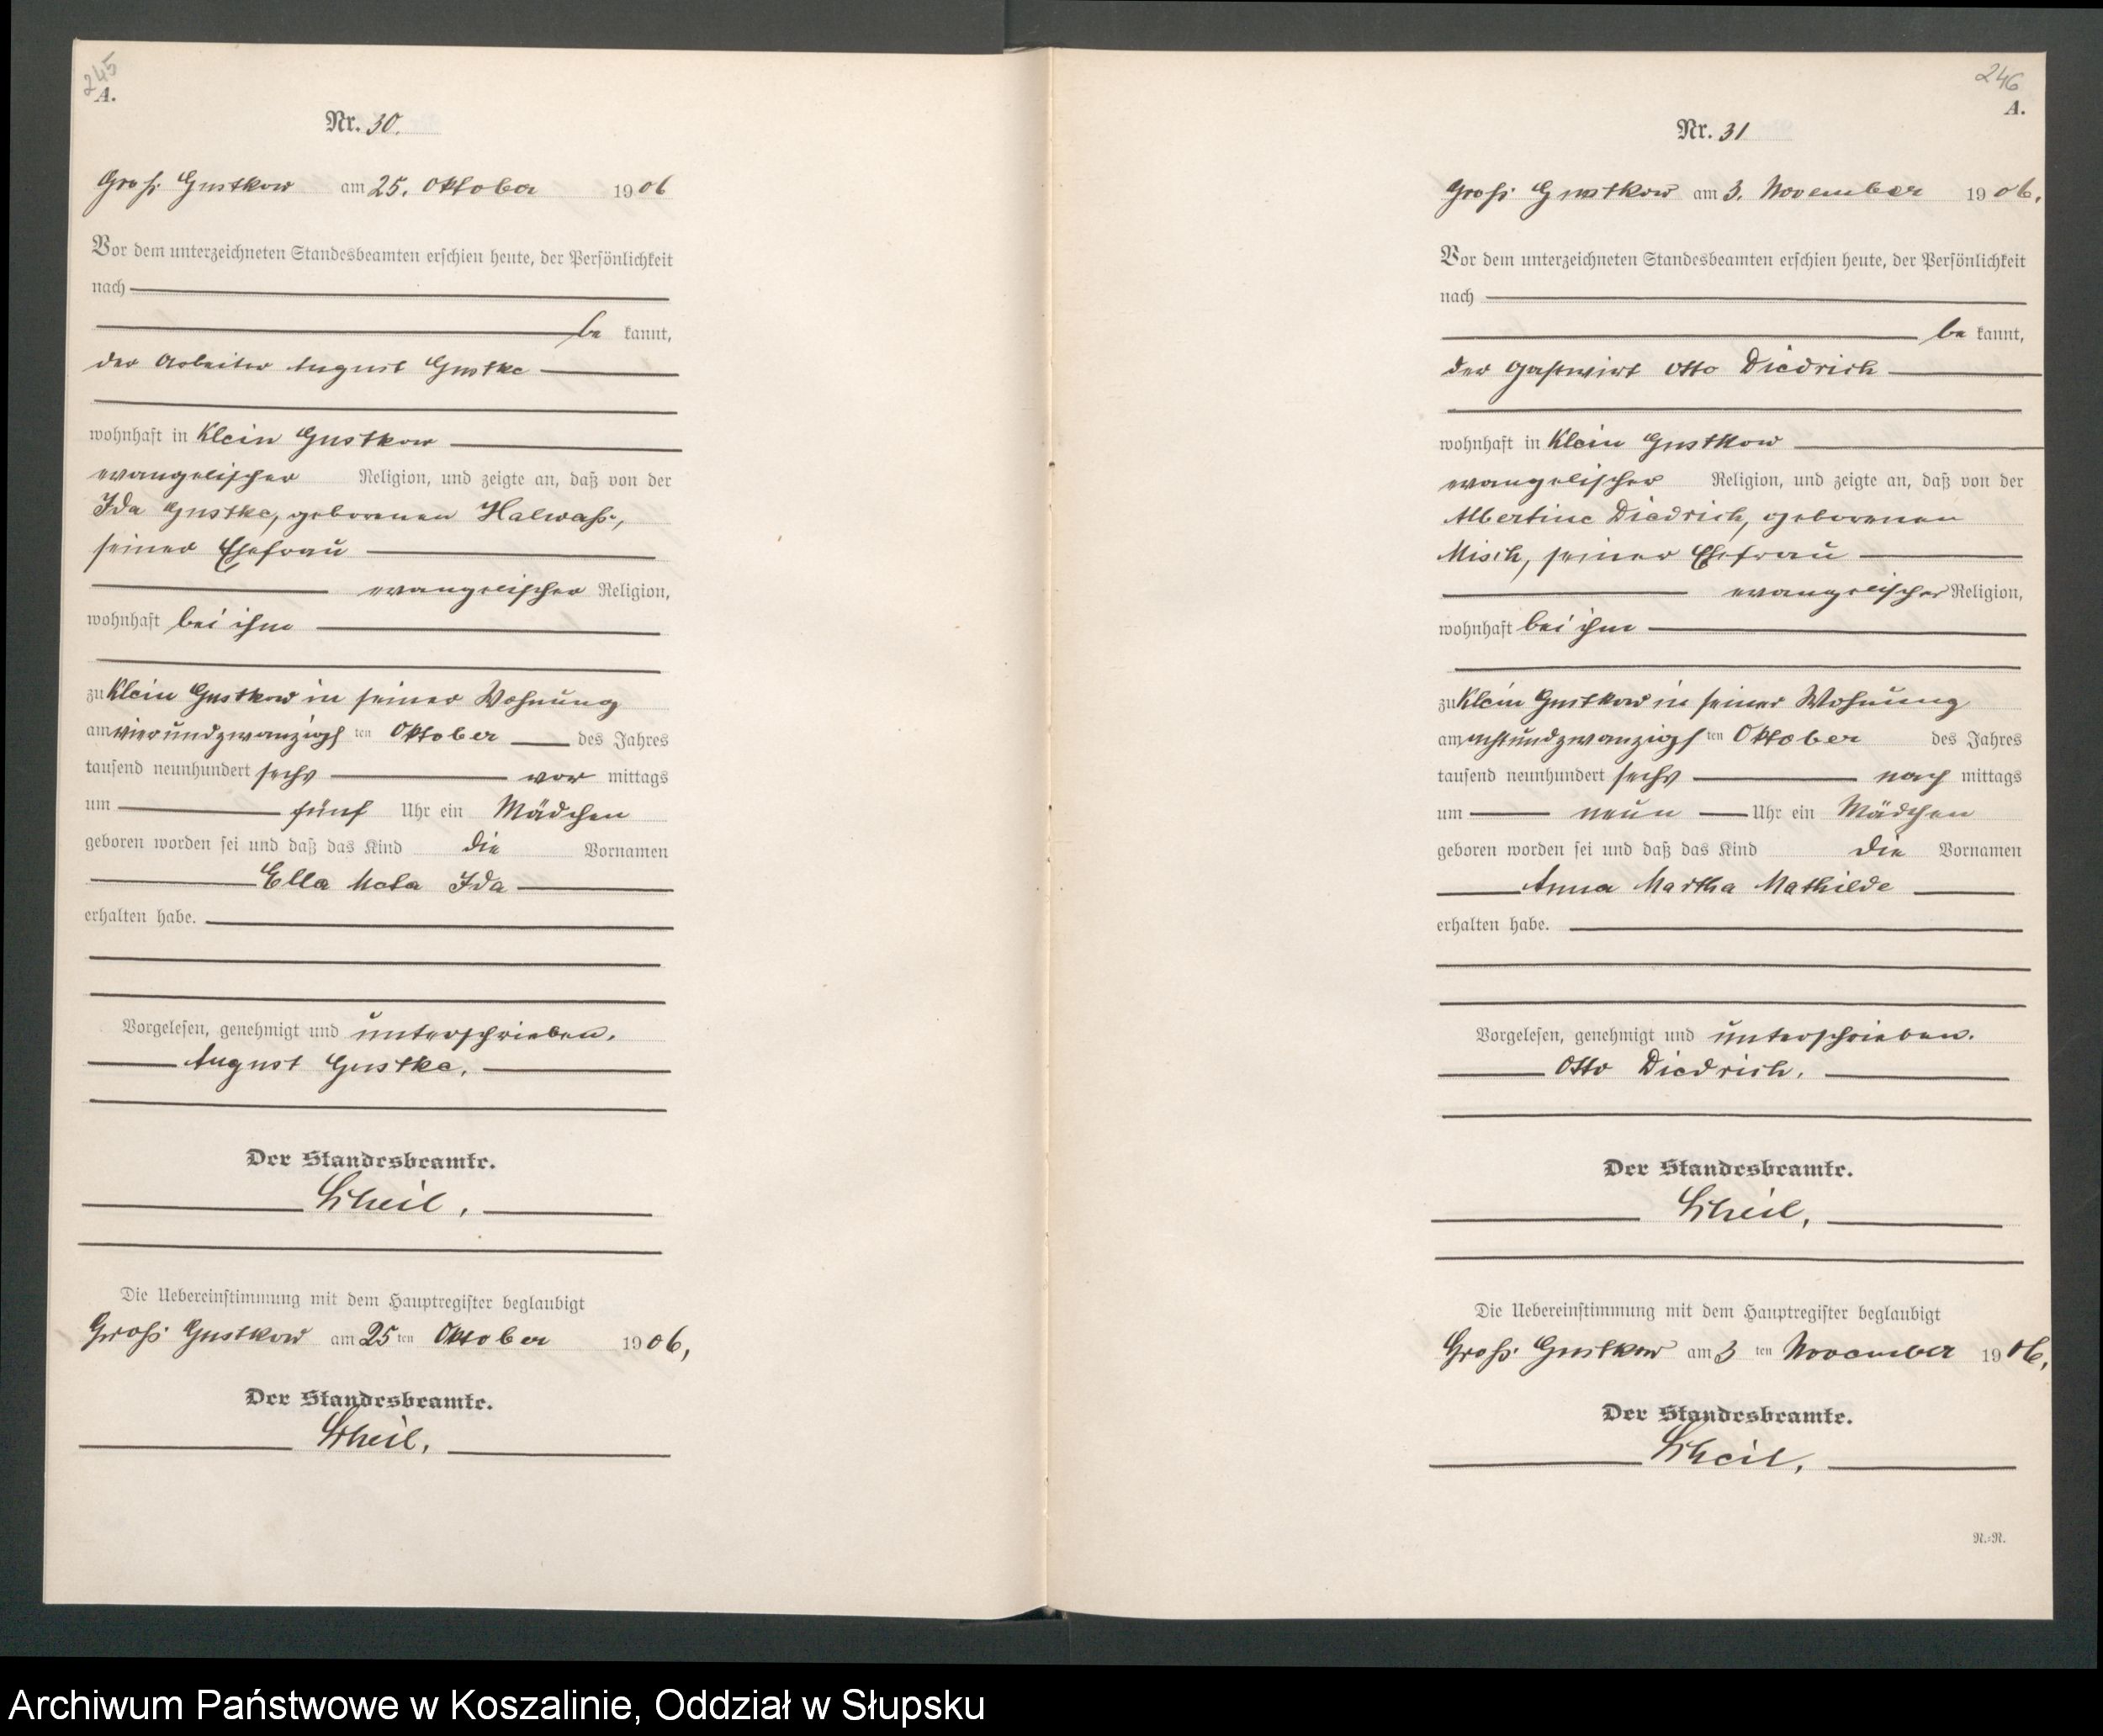 245
A.
Nr. 30.
Groß Gustkow am 25. Oktober 1906
Vor dem unterzeichneten Standesbeamten erschien heute, der Persönlichkeit
nach
be kannt,
der Arbeiter August Gustke
wohnhaft in Klein Gustkow
evangelischer Religion, und zeigte an, daß von der
Ida Gustke, geborenen Halwaß,
seiner Ehefrau
evangelischer Religion,
wohnhaft bei ihm
zu Klein Gustkow in seiner Wohnung
am vierundzwanzigsten Oktober des Jahres
tausend neunhundert sechs vor mittags
um fünf Uhr ein Mädchen
geboren worden sei und daß das Kind die Vornamen
Ella Meta Ida
erhalten habe.
Vorgelesen, genehmigt und unterschrieben.
August Gustke.
Der Standesbeamte.
Scheil.
Die Uebereinstimmung mit dem Hauptregister beglaubigt
Groß Gustkow am 25ten Oktober 1906,
Der Standesbeamte.
Scheil.
246
A.
Nr. 31
Groß Gustkow am 3. November 1906.
Vor dem unterzeichneten Standesbeamten erschien heute, der Persönlichkeit
nach
be kannt,
der Gastwirt Otto Diedrich
wohnhaft in Klein Gustkow
evangelischer Religion, und zeigte an, daß von der
Albertine Diedrich, geborenen
Misch, seiner Ehefrau
evangelischer Religion,
wohnhaft bei ihm
zu Klein Gustkow in seiner Wohnung
am achtundzwanzigsten Oktober des Jahres
tausend neunhundert sechs nach mittags
um neun Uhr ein Mädchen
geboren worden sei und daß das Kind die Vornamen
Anna Martha Mathilde
erhalten habe.
Vorgelesen, genehmigt und unterschrieben.
Otto Diedrich.
Der Standesbeamte.
Scheil.
Die Uebereinstimmung mit dem Hauptregister beglaubigt
Groß Gustkow am 3 ten November 1906.
Der Standesbeamte.
Scheil.
N.=N.
Archiwum Państwowe w Koszalinie, Oddział w Słupsku